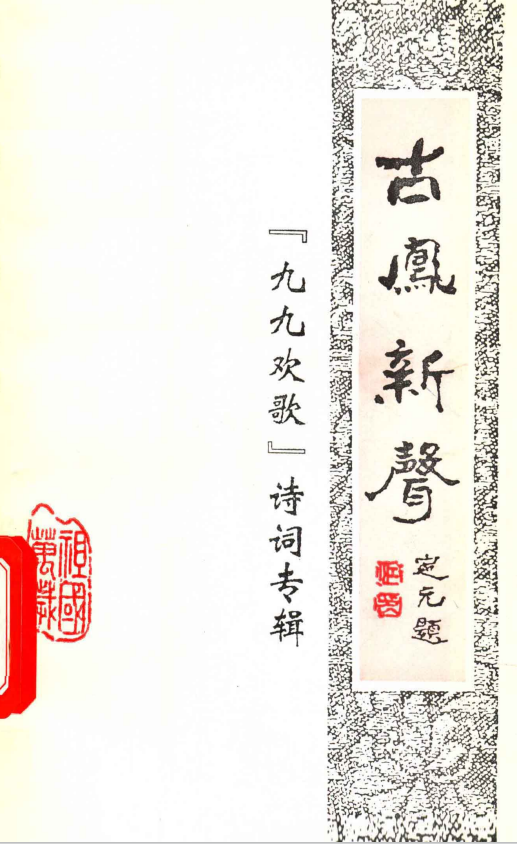 古鳳新聲
定元題
『九九欢歌』诗词专辑
祖國萬歲